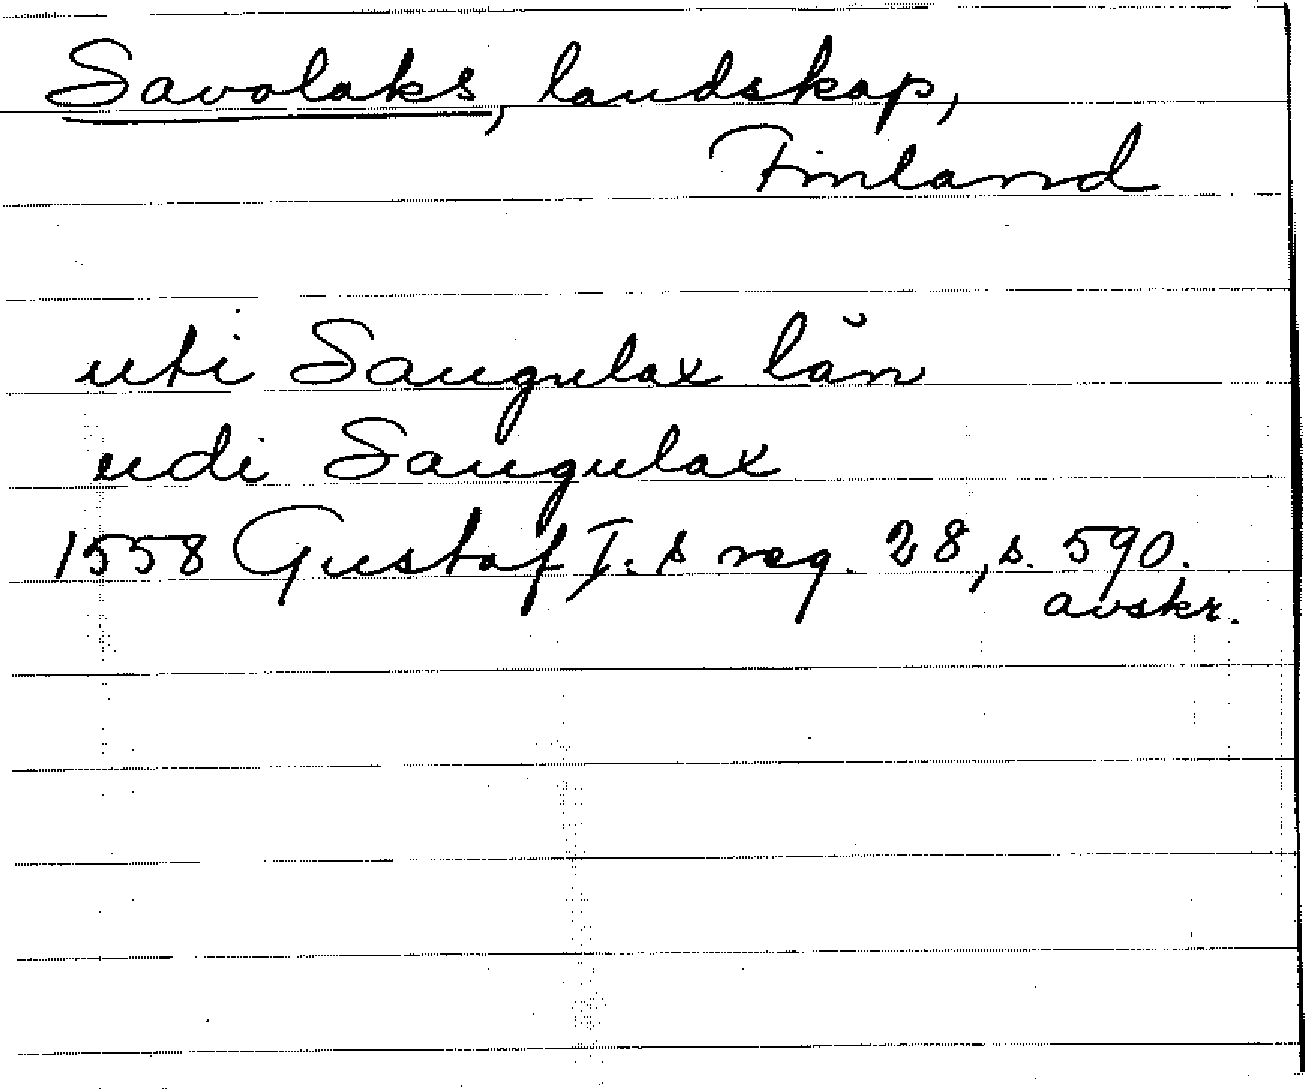 Savolaks, landskap,
Finland
uti Saugulax län
udi Saugulax
1558 Gustaf I:s reg. 28, s. 590.
avskr.